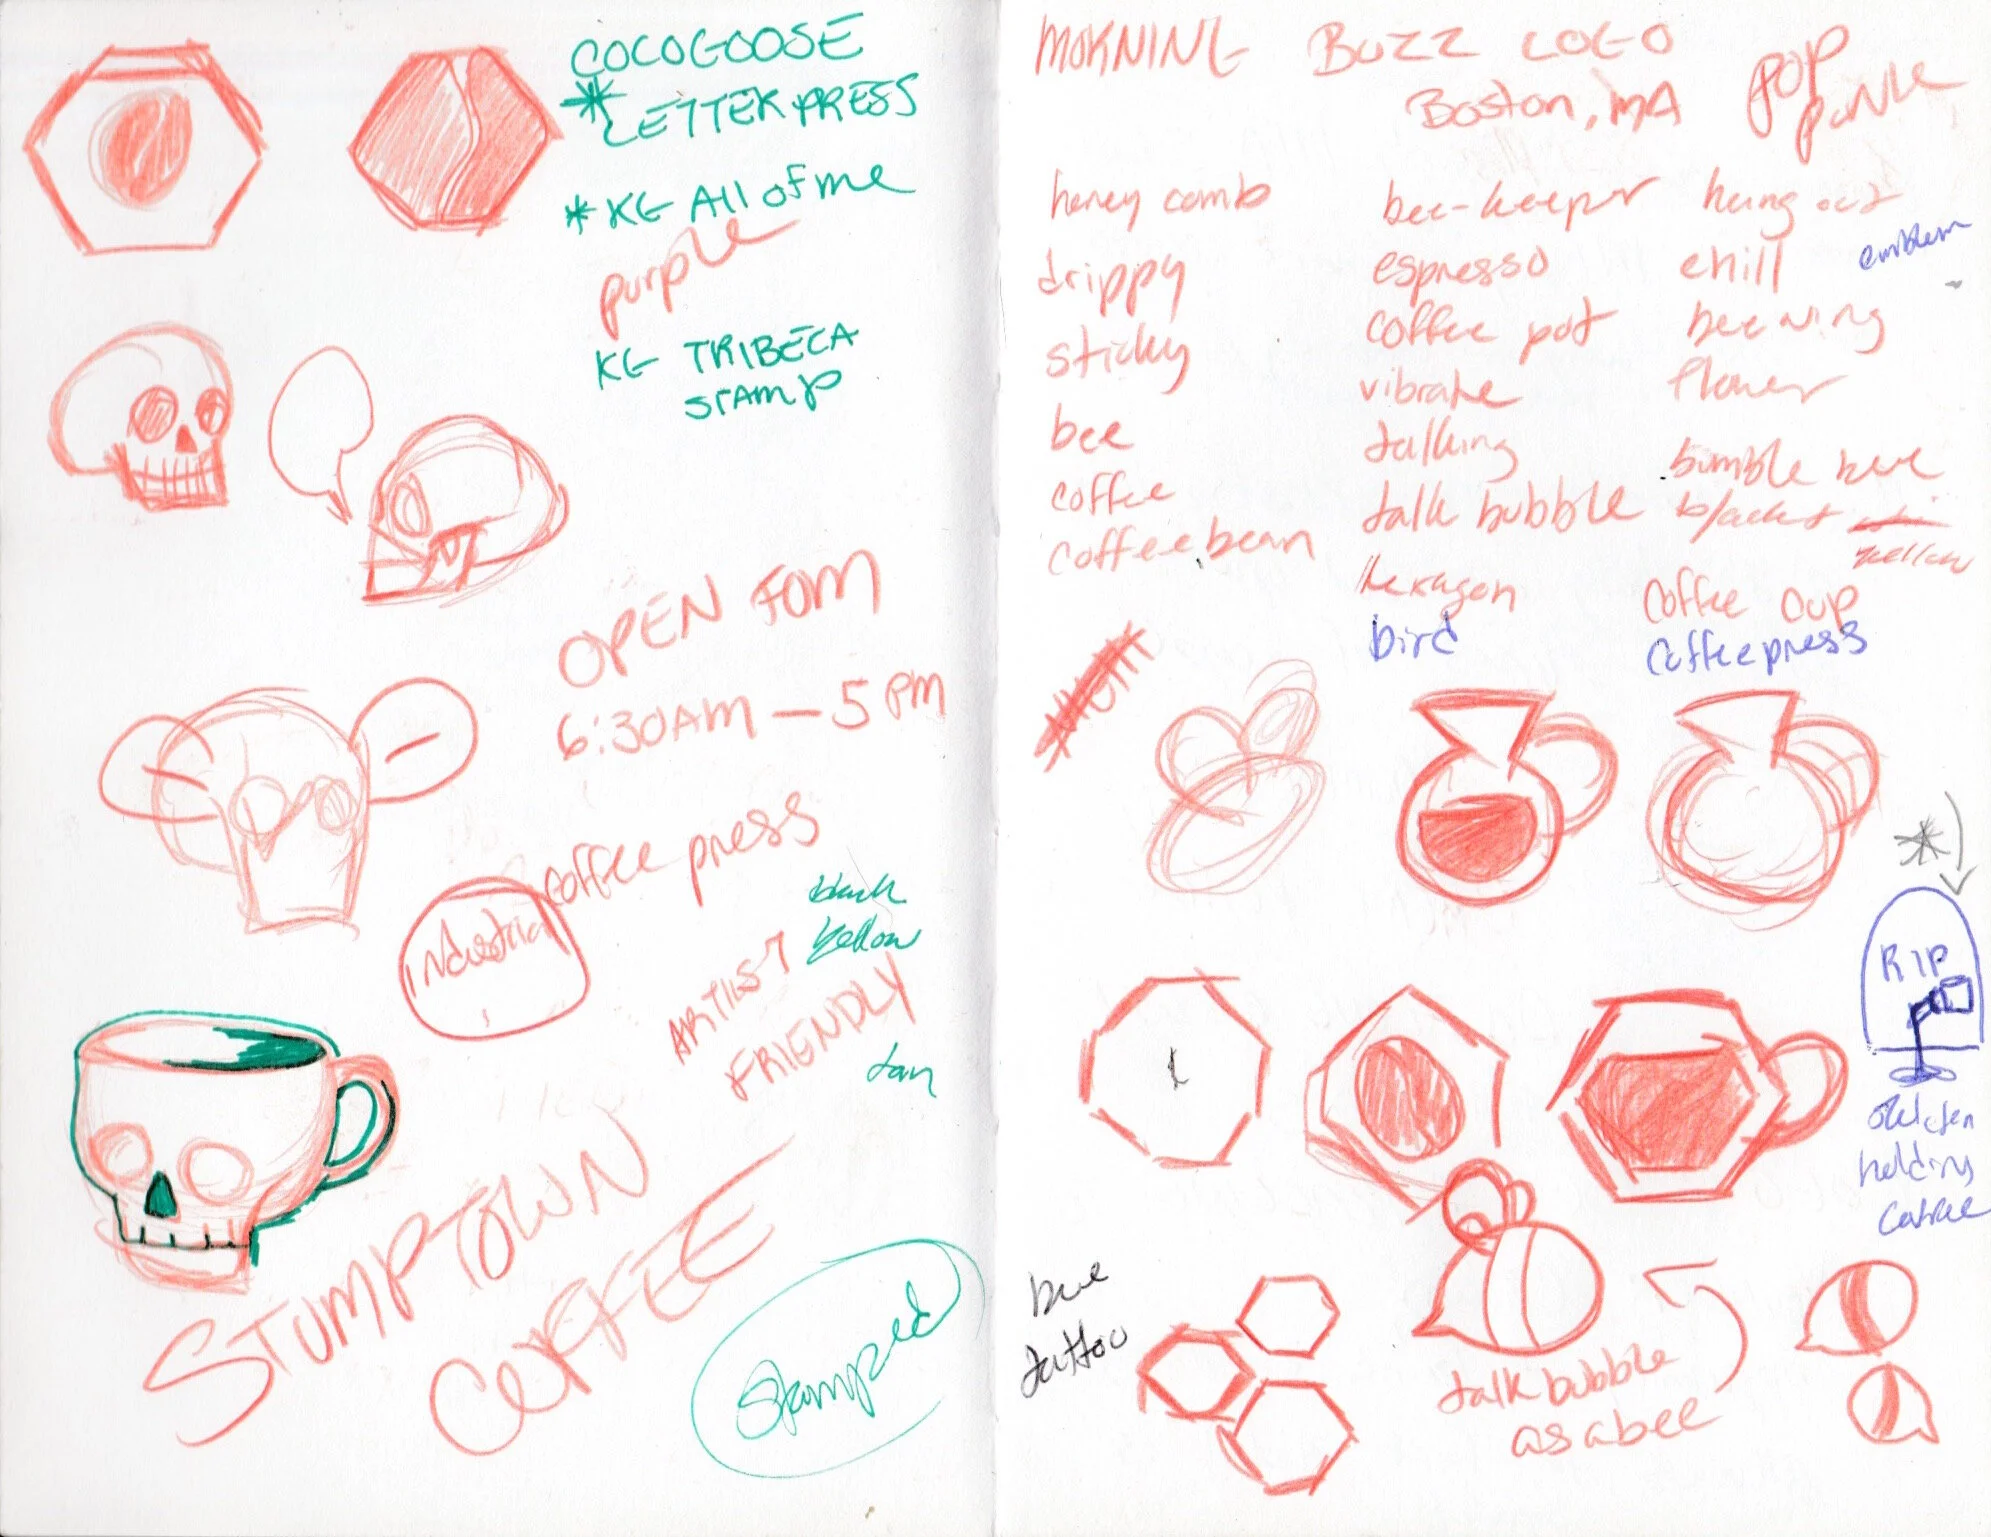 COCOGOOSE
* LETTERPRESS
* KG All of me
purple
KG TRIBECA
STAMP
OPEN FOM
6:30AM — 5 PM
coffee press
industrial
black
yellow
ARTIST
FRIENDLY
tan
STUMPTOWN
COFFEE
stamped
MORNING BUZZ LOGO
Boston, MA
POP
PUNK
honey comb
drippy
sticky
bee
coffee
coffee bean
bee-keeper
espresso
coffee pot
vibrate
talking
talk bubble
hexagon
bird
hang out
emblem
chill
bee wing
flower
bumble bee
black +
yellow
coffee cup
coffee press
*
RIP
holding
coffee
bee
tattoo
talk bubble
as a bee